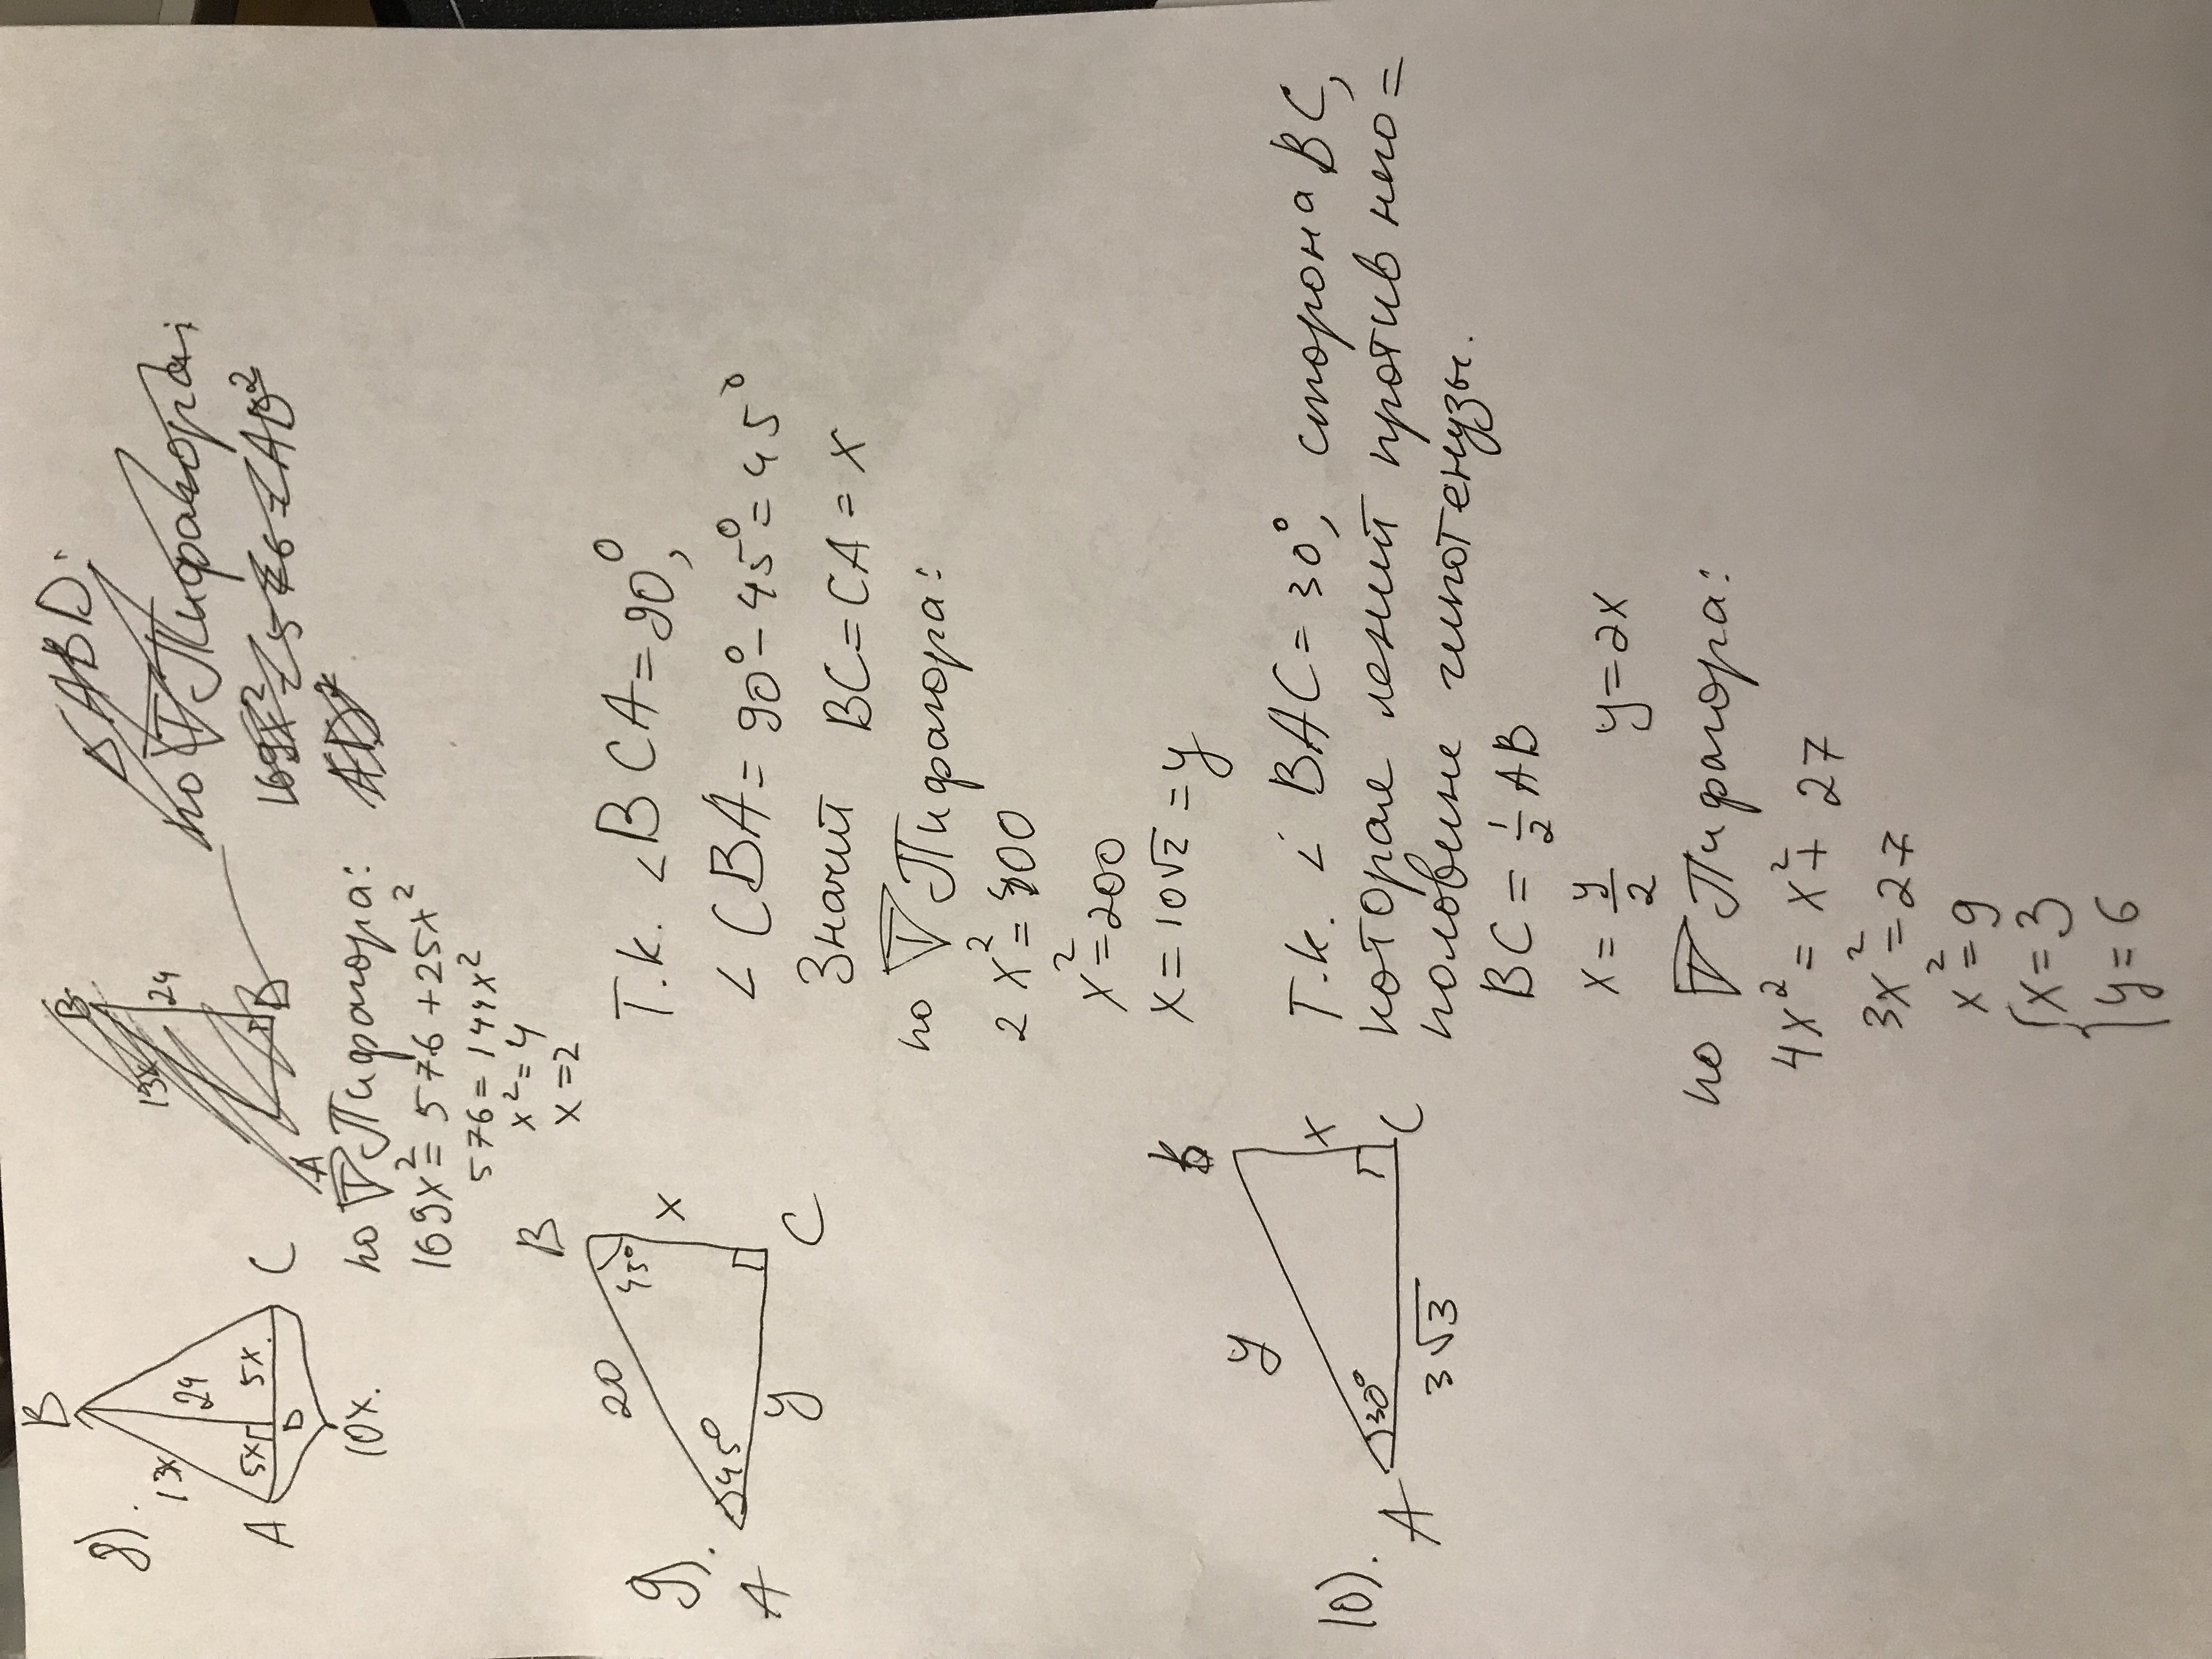 8).
B
13x
24
5x
5x
A
D
C
10x.
B
13x
24
A
B
△ABD:
по Т Пифагора:
AB²
по Т Пифагора:
169x² = 576 + 25x²
576 = 144x²
x² = 4
x = 2
9).
B
20
45°
x
45°
A
y
C
Т.к. ∠BCA = 90°,
∠CBA = 90° - 45° = 45°
Значит BC = CA = x
по Т Пифагора:
2x² = 400
x² = 200
x = 10√2 = y
10).
y
x
30°
A
3√3
C
Т.к. ∠BAC = 30°, сторона BC,
которае лежит против него =
половине гипотенузы.
BC = 1/2 AB
x = y/2 y = 2x
по Т Пифагора:
4x² = x² + 27
3x² = 27
x² = 9
{x = 3
{y = 6